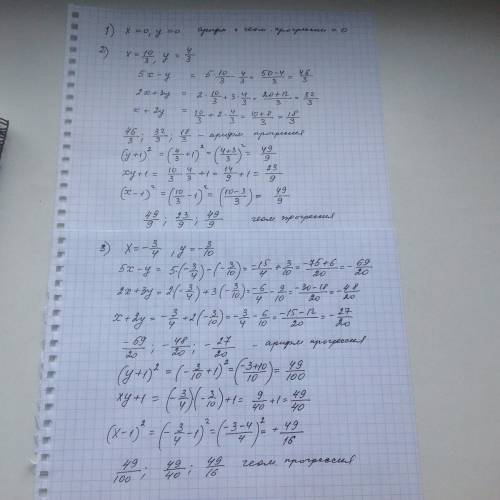 1) x=0, y=0 арифм = геом. прогрессии = 0
2) x = 10/3, y = 4/3
5x-y = 5·10/3 - 4/3 = (50-4)/3 = 46/3
2x+3y = 2·10/3 + 3·4/3 = (20+12)/3 = 32/3
x+2y = 10/3 + 2·4/3 = (10+8)/3 = 18/3
46/3; 32/3; 18/3 - арифм прогрессия
(y+1)² = (4/3+1)² = ((4+3)/3)² = 49/9
xy+1 = 10/3 · 4/3 + 1 = 14/9 + 1 = 23/9
(x-1)² = (10/3 - 1)² = ((10-3)/3)² = 49/9
49/9; 23/9; 49/9 геом прогрессия
3) x = -3/4, y = -3/10
5x-y = 5·(-3/4) - (-3/10) = -15/4 + 3/10 = (-75+6)/20 = -69/20
2x+3y = 2(-3/4) + 3(-3/10) = -6/4 - 9/10 = (-30-18)/20 = -48/20
x+2y = -3/4 + 2(-3/10) = -3/4 - 6/10 = (-15-12)/20 = -27/20
-69/20; -48/20; -27/20 - арифм прогрессия
(y+1)² = (-3/10+1)² = ((-3+10)/10)² = 49/100
xy+1 = (-3/4)(-3/10)+1 = 9/40 + 1 = 49/40
(x-1)² = (-3/4 - 1)² = ((-3-4)/4)² = +49/16
49/100; 49/40; 49/16 геом прогрессия